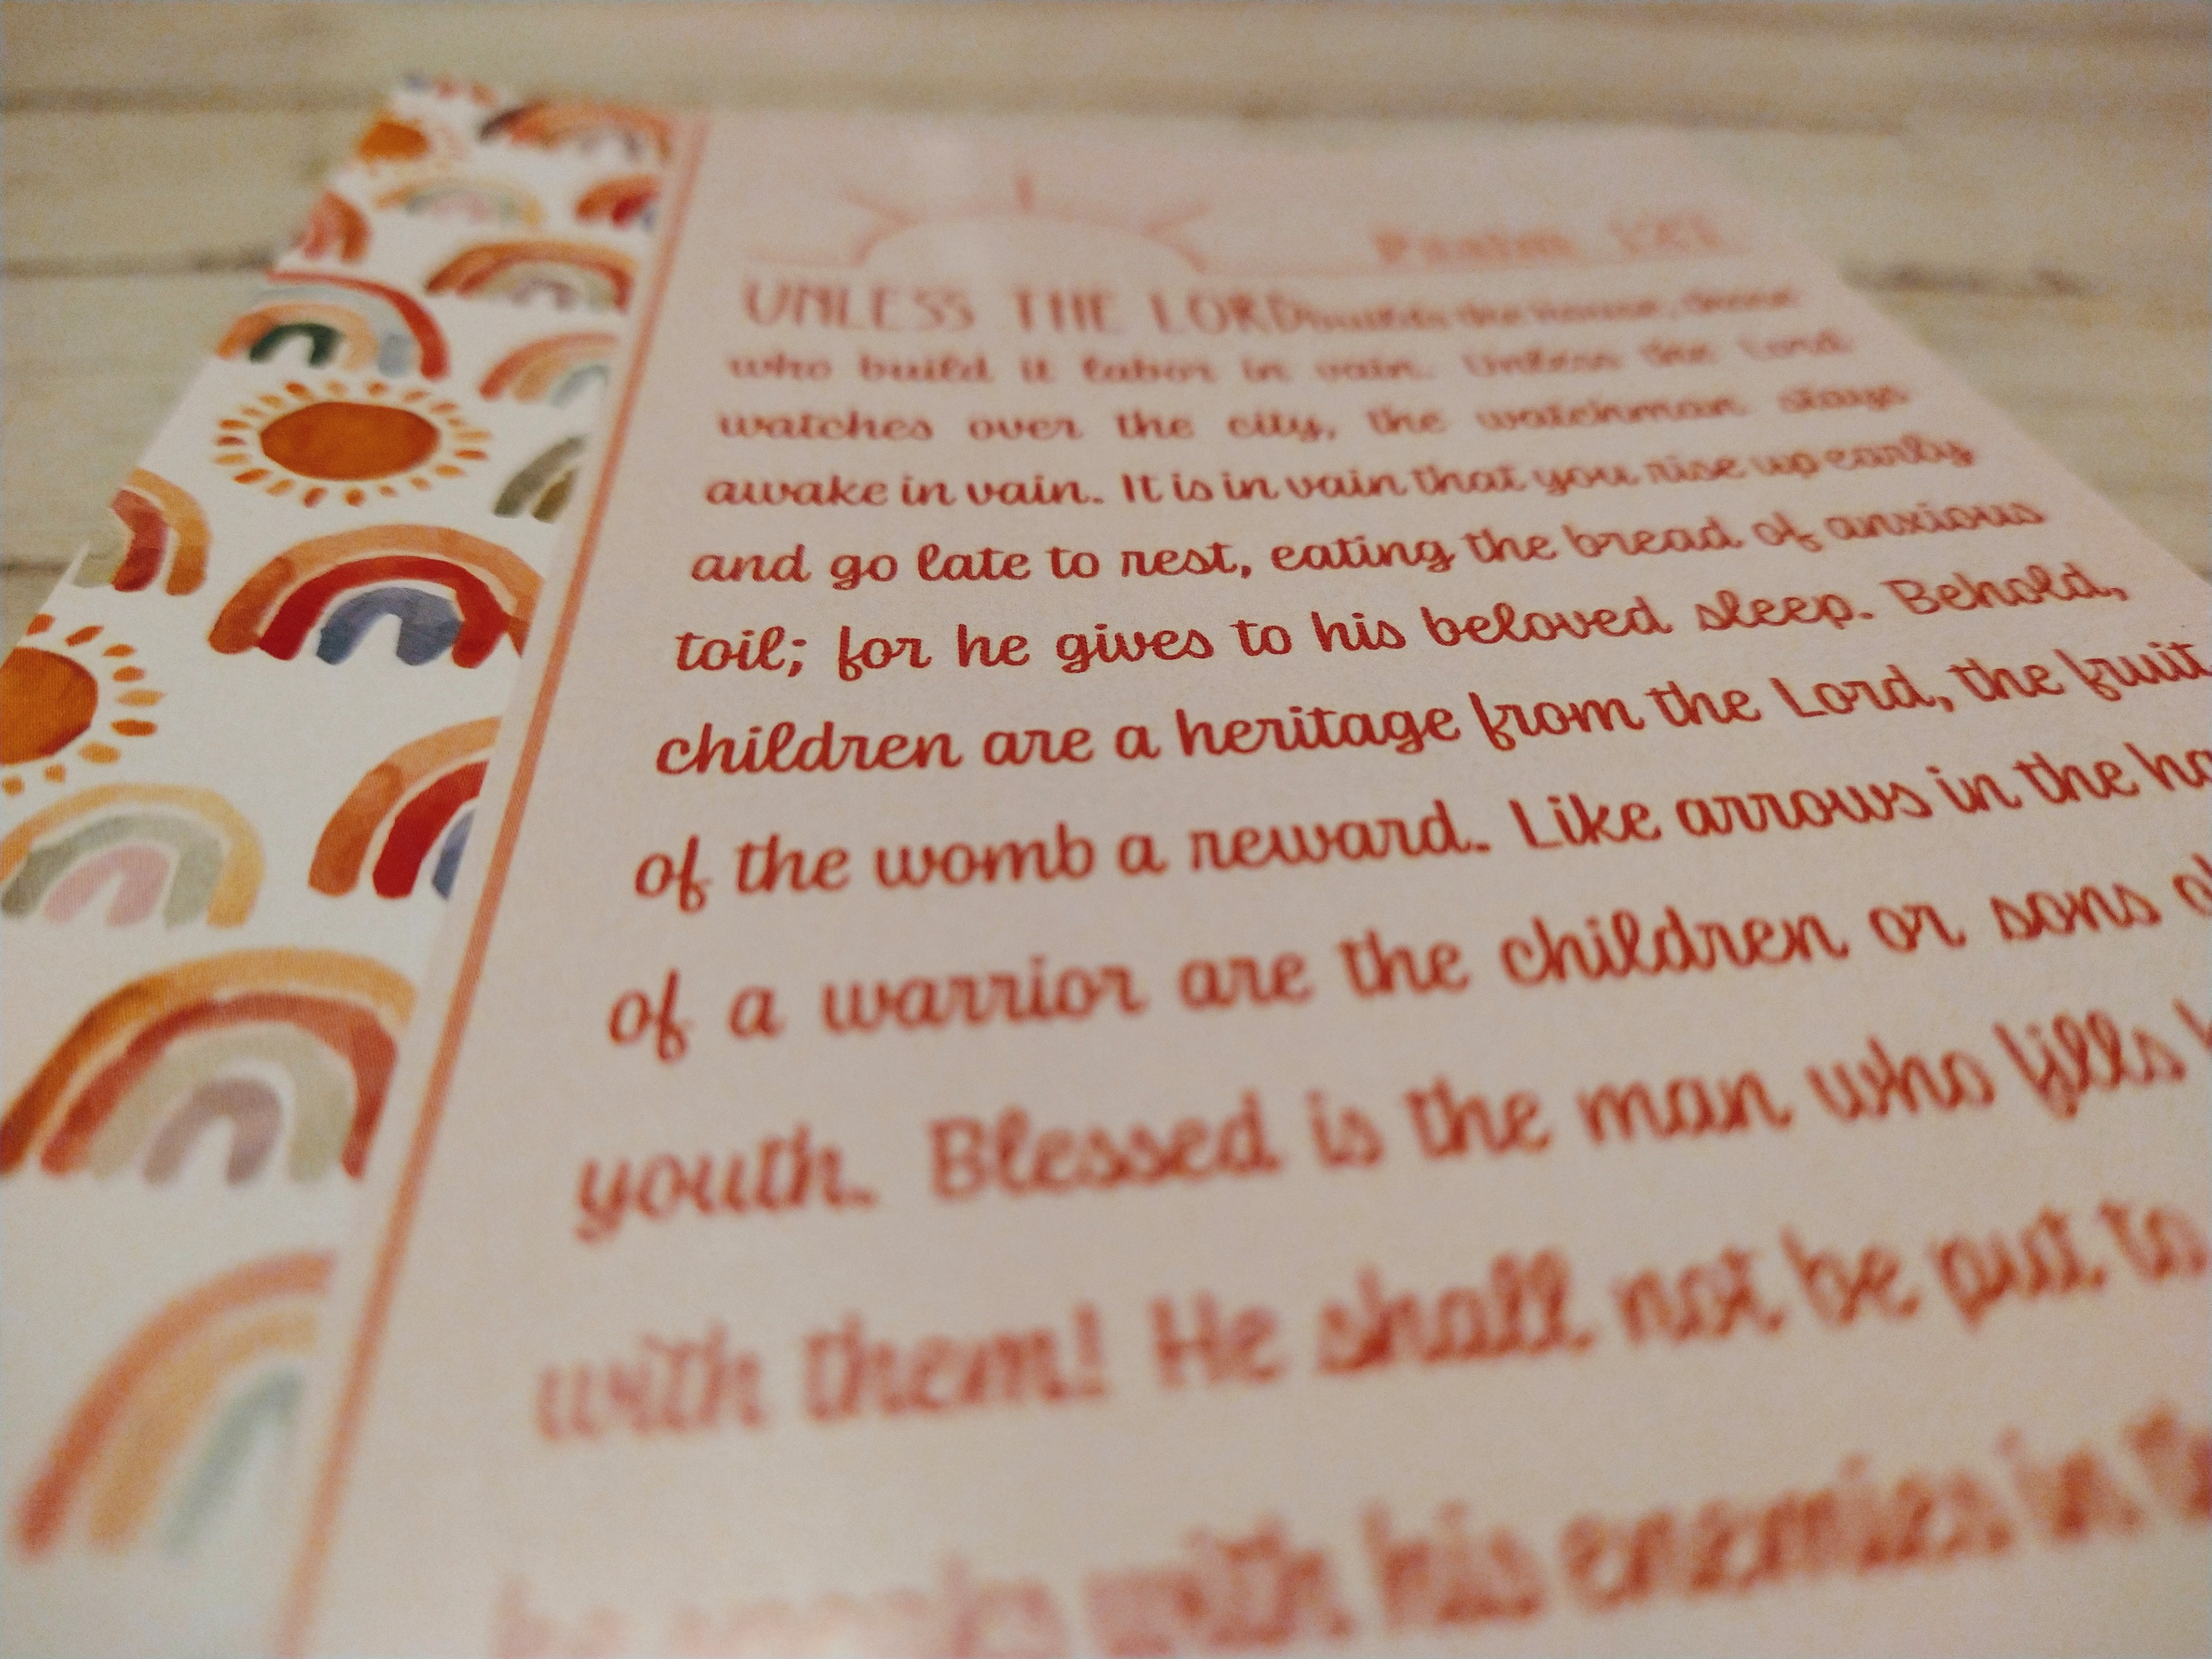 Psalm 127
UNLESS THE LORD builds the house, those
who build it labor in vain. Unless the Lord
watches over the city, the watchman stays
awake in vain. It is in vain that you rise up early
and go late to rest, eating the bread of anxious
toil; for he gives to his beloved sleep. Behold,
children are a heritage from the Lord, the fruit
of the womb a reward. Like arrows in the
of a warrior are the children or sons
youth. Blessed is the man who fills
with them! He shall not be put to
he speaks with his enemies in